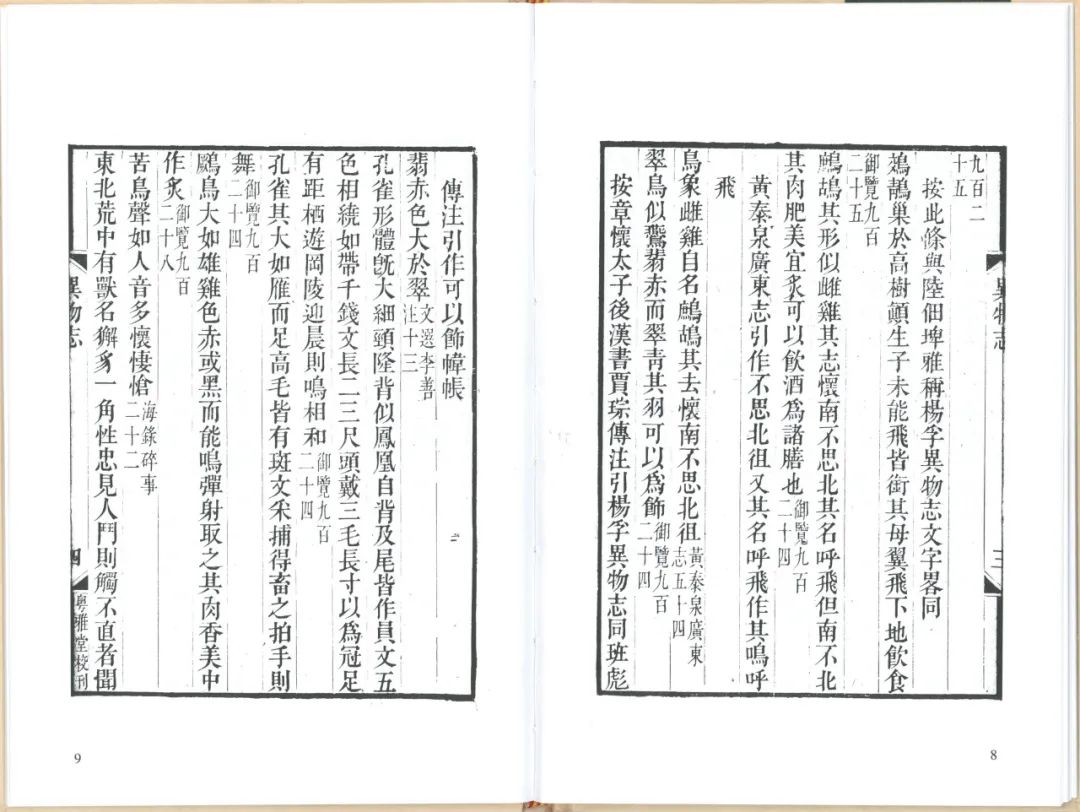 九百二
十五
按此條與陸佃埤雅稱楊孚異物志文字畧同
鵁鶄巢於高樹顛生子未能飛皆銜其母翼飛下地飲食
御覽九百
二十五
鷓鴣其形似雌雞其志懷南不思北其名呼飛但南不北
其肉肥美宜炙可以飲酒爲諸膳也御覽九百
二十四
黃泰泉廣東志引作不思北徂又其名呼飛作其鳴呼
飛
鳥象雌雞自名鷓鴣其去懷南不思北徂黃泰泉廣東
志五十四
翠鳥似鷰翡赤而翠青其羽可以爲飾御覽九百
二十四
按章懷太子後漢書賈琮傳注引楊孚異物志同班彪
異物志
三
8
傳注引作可以飾幃帳
翡赤色大於翠文選李善
注十三
孔雀形體既大細頸隆背似鳳凰自背及尾皆作員文五
色相繞如帶千錢文長二三尺頭戴三毛長寸以爲冠足
有距栖遊岡陵迎晨則鳴相和御覽九百
二十四
孔雀其大如雁而足高毛皆有斑文采捕得畜之拍手則
舞御覽九百
二十四
鸀鳥大如雄雞色赤或黑而能鳴彈射取之其肉香美中
作炙御覽九百
二十八
苦鳥聲如人音多懷悽愴海錄碎事
二十二
東北荒中有獸名獬豸一角性忠見人鬥則觸不直者聞
異物志
四
粵雅堂校刊
9